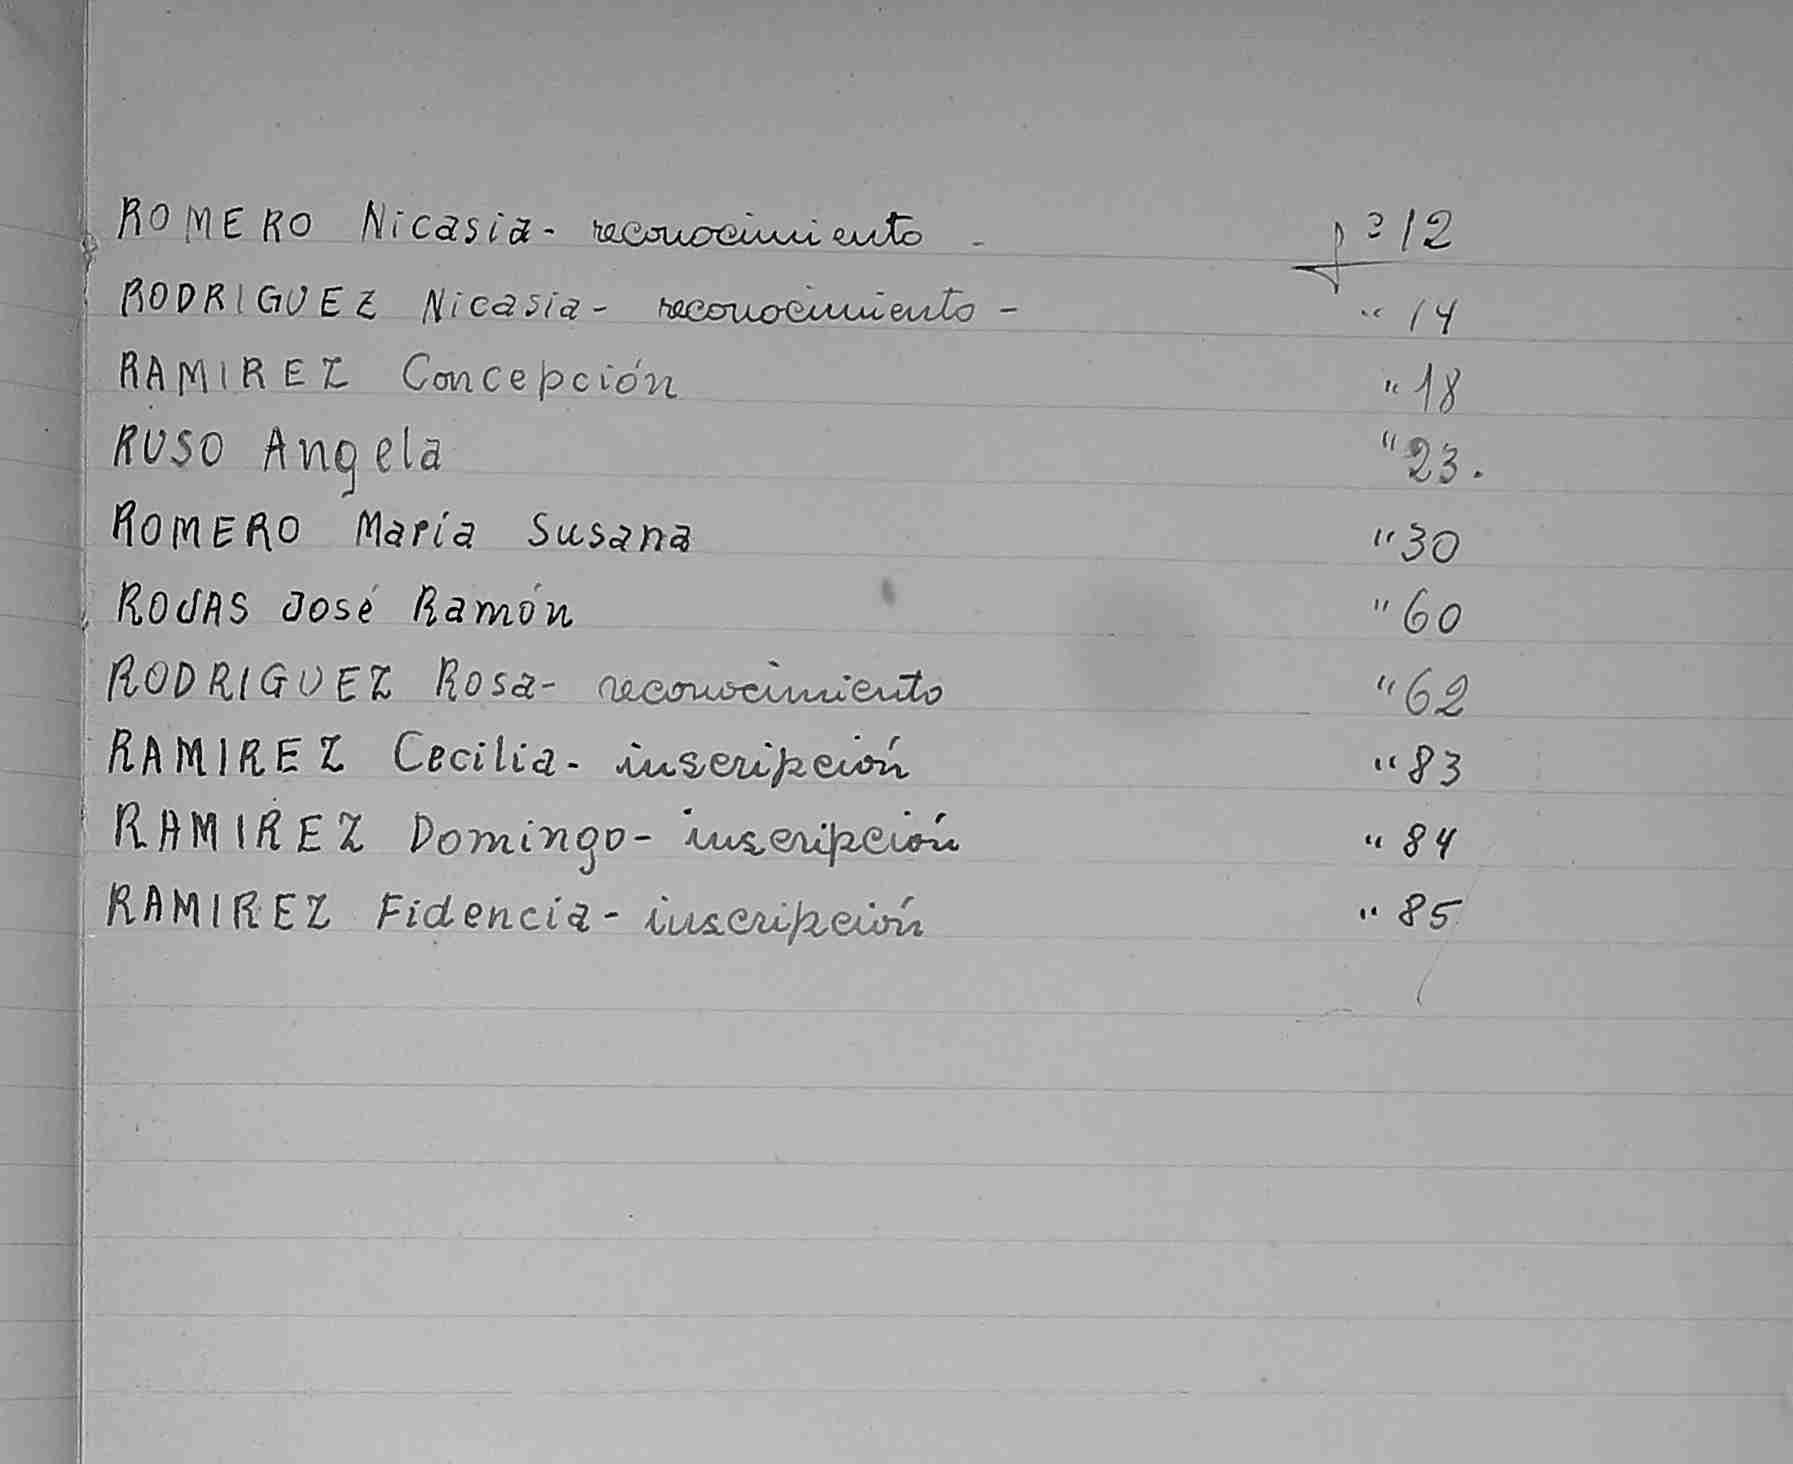 ROMERO Nicasia - reconocimiento - fº 12
RODRIGUEZ Nicasia - reconocimiento - " 14
RAMIREZ Concepción " 18
RUSO Angela " 23.
ROMERO María Susana " 30
ROJAS José Ramón " 60
RODRIGUEZ Rosa - reconocimiento " 62
RAMIREZ Cecilia - inscripción " 83
RAMIREZ Domingo - inscripción " 84
RAMIREZ Fidencia - inscripción " 85